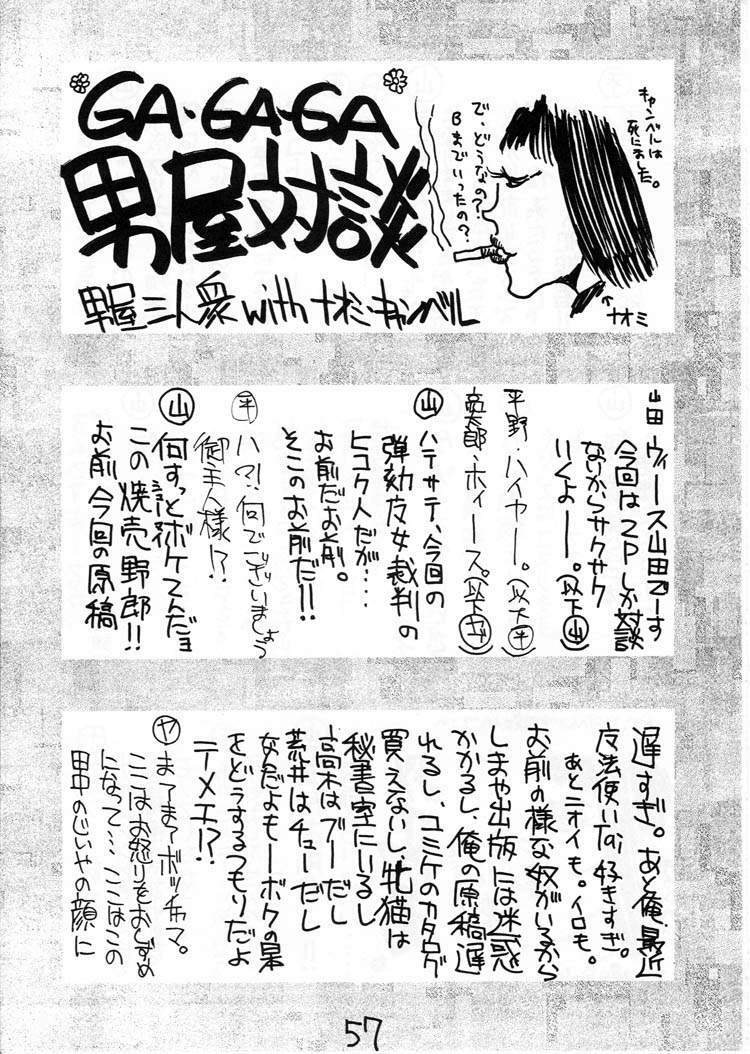 GA・GA・GA
男屋対談
男屋三人衆withナオミ・キャンベル
キャンベルは
死にました。
で、どうなの?
Bまでいったの?
←ナオミ
山田 ウィース山田でーす
今回は2Pしか対談
ないからサクサク
いくよーー。(以下㊤山)
平野・ハイヤー。(以下平)
・ホィース。(以下ヤ)
山 ハテサテ、今回の
弾劾友女裁判の
ヒコク人だが‥‥
お前だお前。
そこのお前だ!!
平 ハ?!何でございましょう
御主人様!?
山 何すっとボケてんだョ
この焼売野郎!!
お前、今回の原稿
遅すぎ。あと俺、最近
友法使いTai好きすぎ。
あとニオイも。イロも。
お前の様な奴がいるから
しまや出版には迷惑
かかるし、俺の原稿遅
れるし、コミケのカタログ
買えないし、牝猫は
秘書室にいるし
高木はブーだし
荒井はチューだし
なんだよもーボクの果
をどうするつもりだよ
テメエ!?
ヤ まてまてボッチャマ。
ここはお怒りをおしずめ
になって…ここはこの
田中のじいやの顔に
57